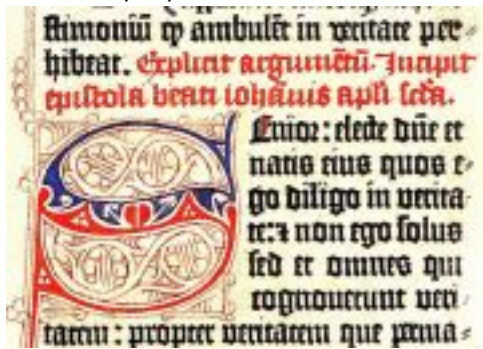 stimoniū ꝙ ambulēt in veritate per-
hibeat. Explicit argumētū. Incipit
epistola beati iohānis apl'i scďa.
Senior: electe dn̄e et
natis eius quos e-
go diligo in verita-
te: ⁊ non ego solus
sed et omnes qui
cognouerunt veri-
tatem: propter veritatem que perma-